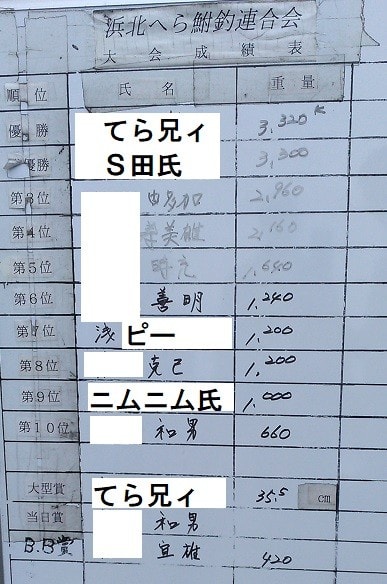 浜北へら鮒釣連合会
大会成績表
順位 氏名 重量
優勝 てら兄ィ 3,320
優勝 S田氏 3,300
第3位 由多加 2,960
第4位 美雄 2,160
第5位 1,640
第6位 善明 1,240
第7位 浅ピー 1,200
第8位 克己 1,200
第9位 ニムニム氏 1,000
第10位 和男 660
大型賞 てら兄ィ 35.5 cm
当日賞 和男
B.B賞 宜雄 420